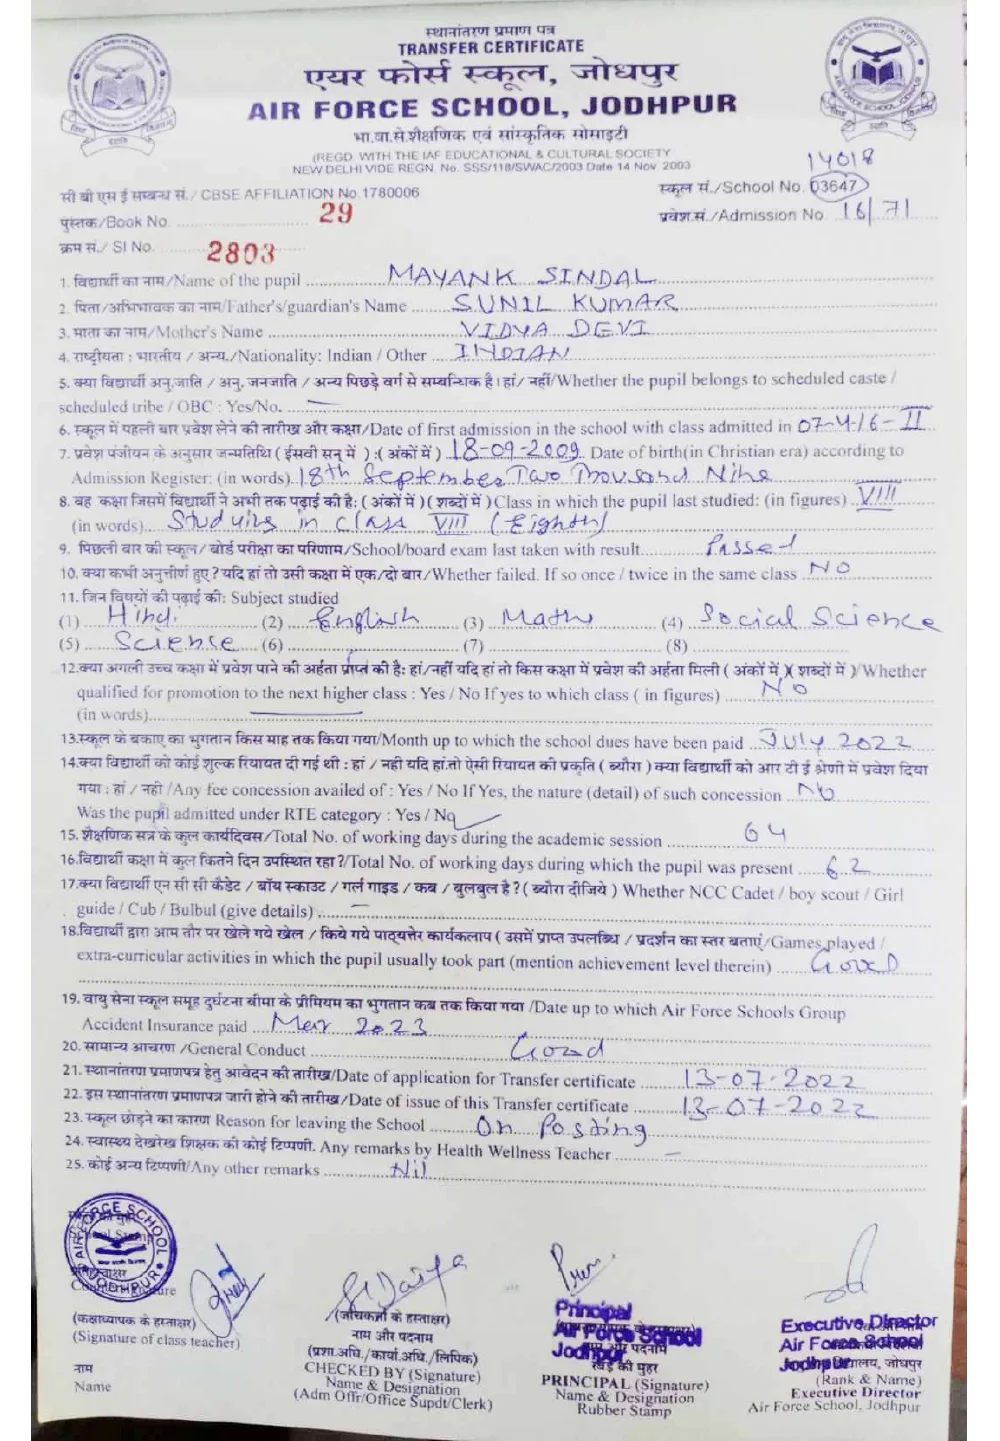 स्थानांतरण प्रमाण पत्र
TRANSFER CERTIFICATE
एयर फोर्स स्कूल, जोधपुर
AIR FORCE SCHOOL, JODHPUR
भा.वा.से.शैक्षणिक एवं सांस्कृतिक सोसाइटी
(REGD. WITH THE IAF EDUCATIONAL & CULTURAL SOCIETY
NEW DELHI VIDE REGN. No. SSS/118/SWAC/2003 Date 14 Nov. 2003
14018
सी बी एस ई सम्बन्ध सं. / CBSE AFFILIATION No. 1780006
स्कूल सं./School No. 03647
पुस्तक/Book No. 29
प्रवेश.सं./Admission No. 16/71
क्रम सं./ Sl No. 2803
1. विद्यार्थी का नाम/Name of the pupil MAYANK SINDAL
2. पिता/अभिभावक का नाम/Father's/guardian's Name SUNIL KUMAR
3. माता का नाम/Mother's Name VIDYA DEVI
4. राष्ट्रीयता : भारतीय / अन्य./Nationality: Indian / Other INDIAN
5. क्या विद्यार्थी अनु.जाति / अनु. जनजाति / अन्य पिछड़े वर्ग से सम्बन्धिक है। हां/ नहीं/Whether the pupil belongs to scheduled caste /
scheduled tribe / OBC : Yes/No. —
6. स्कूल में पहली बार प्रवेश लेने की तारीख और कक्षा/Date of first admission in the school with class admitted in 07-4-16 - II
7. प्रवेश पंजीयन के अनुसार जन्मतिथि ( ईसवी सन् में ) :( अंकों में ) 18-09-2009 Date of birth(in Christian era) according to
Admission Register: (in words) 18th September Two Thousand Nine
8. वह कक्षा जिसमें विद्यार्थी ने अभी तक पढ़ाई की है: ( अंकों में ) ( शब्दों में ) Class in which the pupil last studied: (in figures) VIII
(in words) Studying in class VIII (Eighth)
9. पिछली बार की स्कूल/ बोर्ड परीक्षा का परिणाम/School/board exam last taken with result Passed
10. क्या कभी अनुत्तीर्ण हुए ? यदि हां तो उसी कक्षा में एक/दो बार/Whether failed. If so once / twice in the same class NO
11. जिन विषयों की पढ़ाई की: Subject studied
(1) Hindi (2) English (3) Maths (4) Social Science
(5) Science (6) (7) (8)
12.क्या अगली उच्च कक्षा में प्रवेश पाने की अर्हता प्राप्त की है: हां/नहीं यदि हां तो किस कक्षा में प्रवेश की अर्हता मिली ( अंकों में )( शब्दों में )/ Whether
qualified for promotion to the next higher class : Yes / No If yes to which class ( in figures) NO
(in words)
13.स्कूल के बकाए का भुगतान किस माह तक किया गया/Month up to which the school dues have been paid JULY 2022
14.क्या विद्यार्थी को कोई शुल्क रियायत दी गई थी : हां / नही यदि हां.तो ऐसी रियायत की प्रकृति ( ब्यौरा ) क्या विद्यार्थी को आर टी ई श्रेणी में प्रवेश दिया
गया : हां / नही /Any fee concession availed of : Yes / No If Yes, the nature (detail) of such concession No
Was the pupil admitted under RTE category : Yes / No
15. शैक्षणिक सत्र के कुल कार्यदिवस/Total No. of working days during the academic session 64
16.विद्यार्थी कक्षा में कुल कितने दिन उपस्थित रहा ?/Total No. of working days during which the pupil was present 62
17.क्या विद्यार्थी एन सी सी कैडेट / बॉय स्काउट / गर्ल गाइड / कब / बुलबुल है ? ( ब्यौरा दीजिये ) Whether NCC Cadet / boy scout / Girl
guide / Cub / Bulbul (give details) —
18.विद्यार्थी द्वारा आम तौर पर खेले गये खेल / किये गये पाठ्यत्तेर कार्यकलाप ( उसमें प्राप्त उपलब्धि / प्रदर्शन का स्तर बताएं/Games played /
extra-curricular activities in which the pupil usually took part (mention achievement level therein) Good
19. वायु सेना स्कूल समूह दुर्घटना बीमा के प्रीमियम का भुगतान कब तक किया गया /Date up to which Air Force Schools Group
Accident Insurance paid Mar 2023
20. सामान्य आचरण /General Conduct Good
21. स्थानांतरण प्रमाणपत्र हेतु आवेदन की तारीख/Date of application for Transfer certificate 13-07-2022
22. इस स्थानांतरण प्रमाणपत्र जारी होने की तारीख/Date of issue of this Transfer certificate 13-07-2022
23. स्कूल छोड़ने का कारण Reason for leaving the School On Posting
24. स्वास्थ्य देखरेख शिक्षक की कोई टिप्पणी. Any remarks by Health Wellness Teacher —
25. कोई अन्य टिप्पणी/Any other remarks Nil
AIR FORCE SCHOOL
JODHPUR
(कक्षाध्यापक के हस्ताक्षर)
(Signature of class teacher)
नाम
Name
(जांचकर्ता के हस्ताक्षर)
नाम और पदनाम
(प्रशा.अधि./कार्या.अधि./लिपिक)
CHECKED BY (Signature)
Name & Designation
(Adm Offr/Office Supdt/Clerk)
Principal
Air Force School
Jodhpur
रबड़ की मुहर
PRINCIPAL (Signature)
Name & Designation
Rubber Stamp
Executive Director
Air Force School
Jodhpur
जोधपुर
(Rank & Name)
Executive Director
Air Force School, Jodhpur